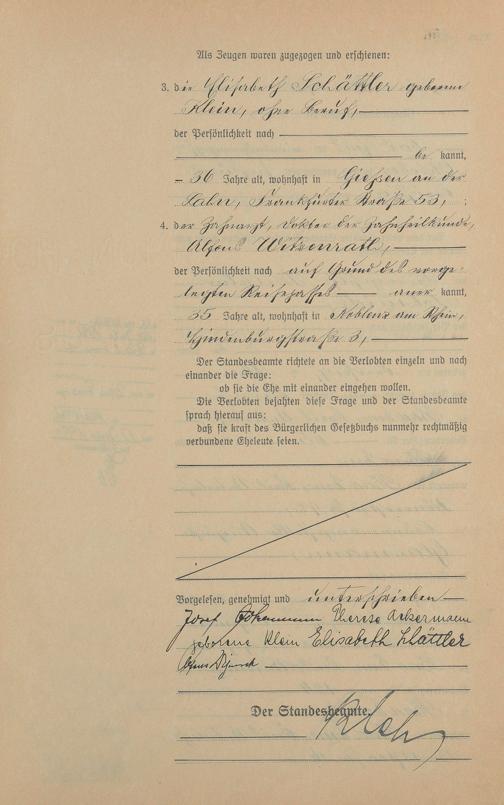 Als Zeugen waren zugezogen und erschienen:
3. die Elisabeth Schättler geborene
Klein, ohne Beruf,
der Persönlichkeit nach
be kannt,
36 Jahre alt, wohnhaft in Gießen an der
Lahn, Frankfurter Straße 53, ;
4. der Zahnarzt, Doktor der Zahnheilkunde,
Alfons
der Persönlichkeit nach auf Grund des vorge-
legten Reisepasses aner kannt,
35 Jahre alt, wohnhaft in Koblenz am Rhein,
Hindenburgstraße 3,
Der Standesbeamte richtete an die Verlobten einzeln und nach
einander die Frage:
ob sie die Ehe mit einander eingehen wollen.
Die Verlobten bejahten diese Frage und der Standesbeamte
sprach hierauf aus:
daß sie kraft des Bürgerlichen Gesetzbuchs nunmehr rechtmäßig
verbundene Eheleute seien.
Vorgelesen, genehmigt und unterschrieben
Josef Ackermann Therese Ackermann
geborene Klein Elisabeth Schättler
Der Standesbeamte.